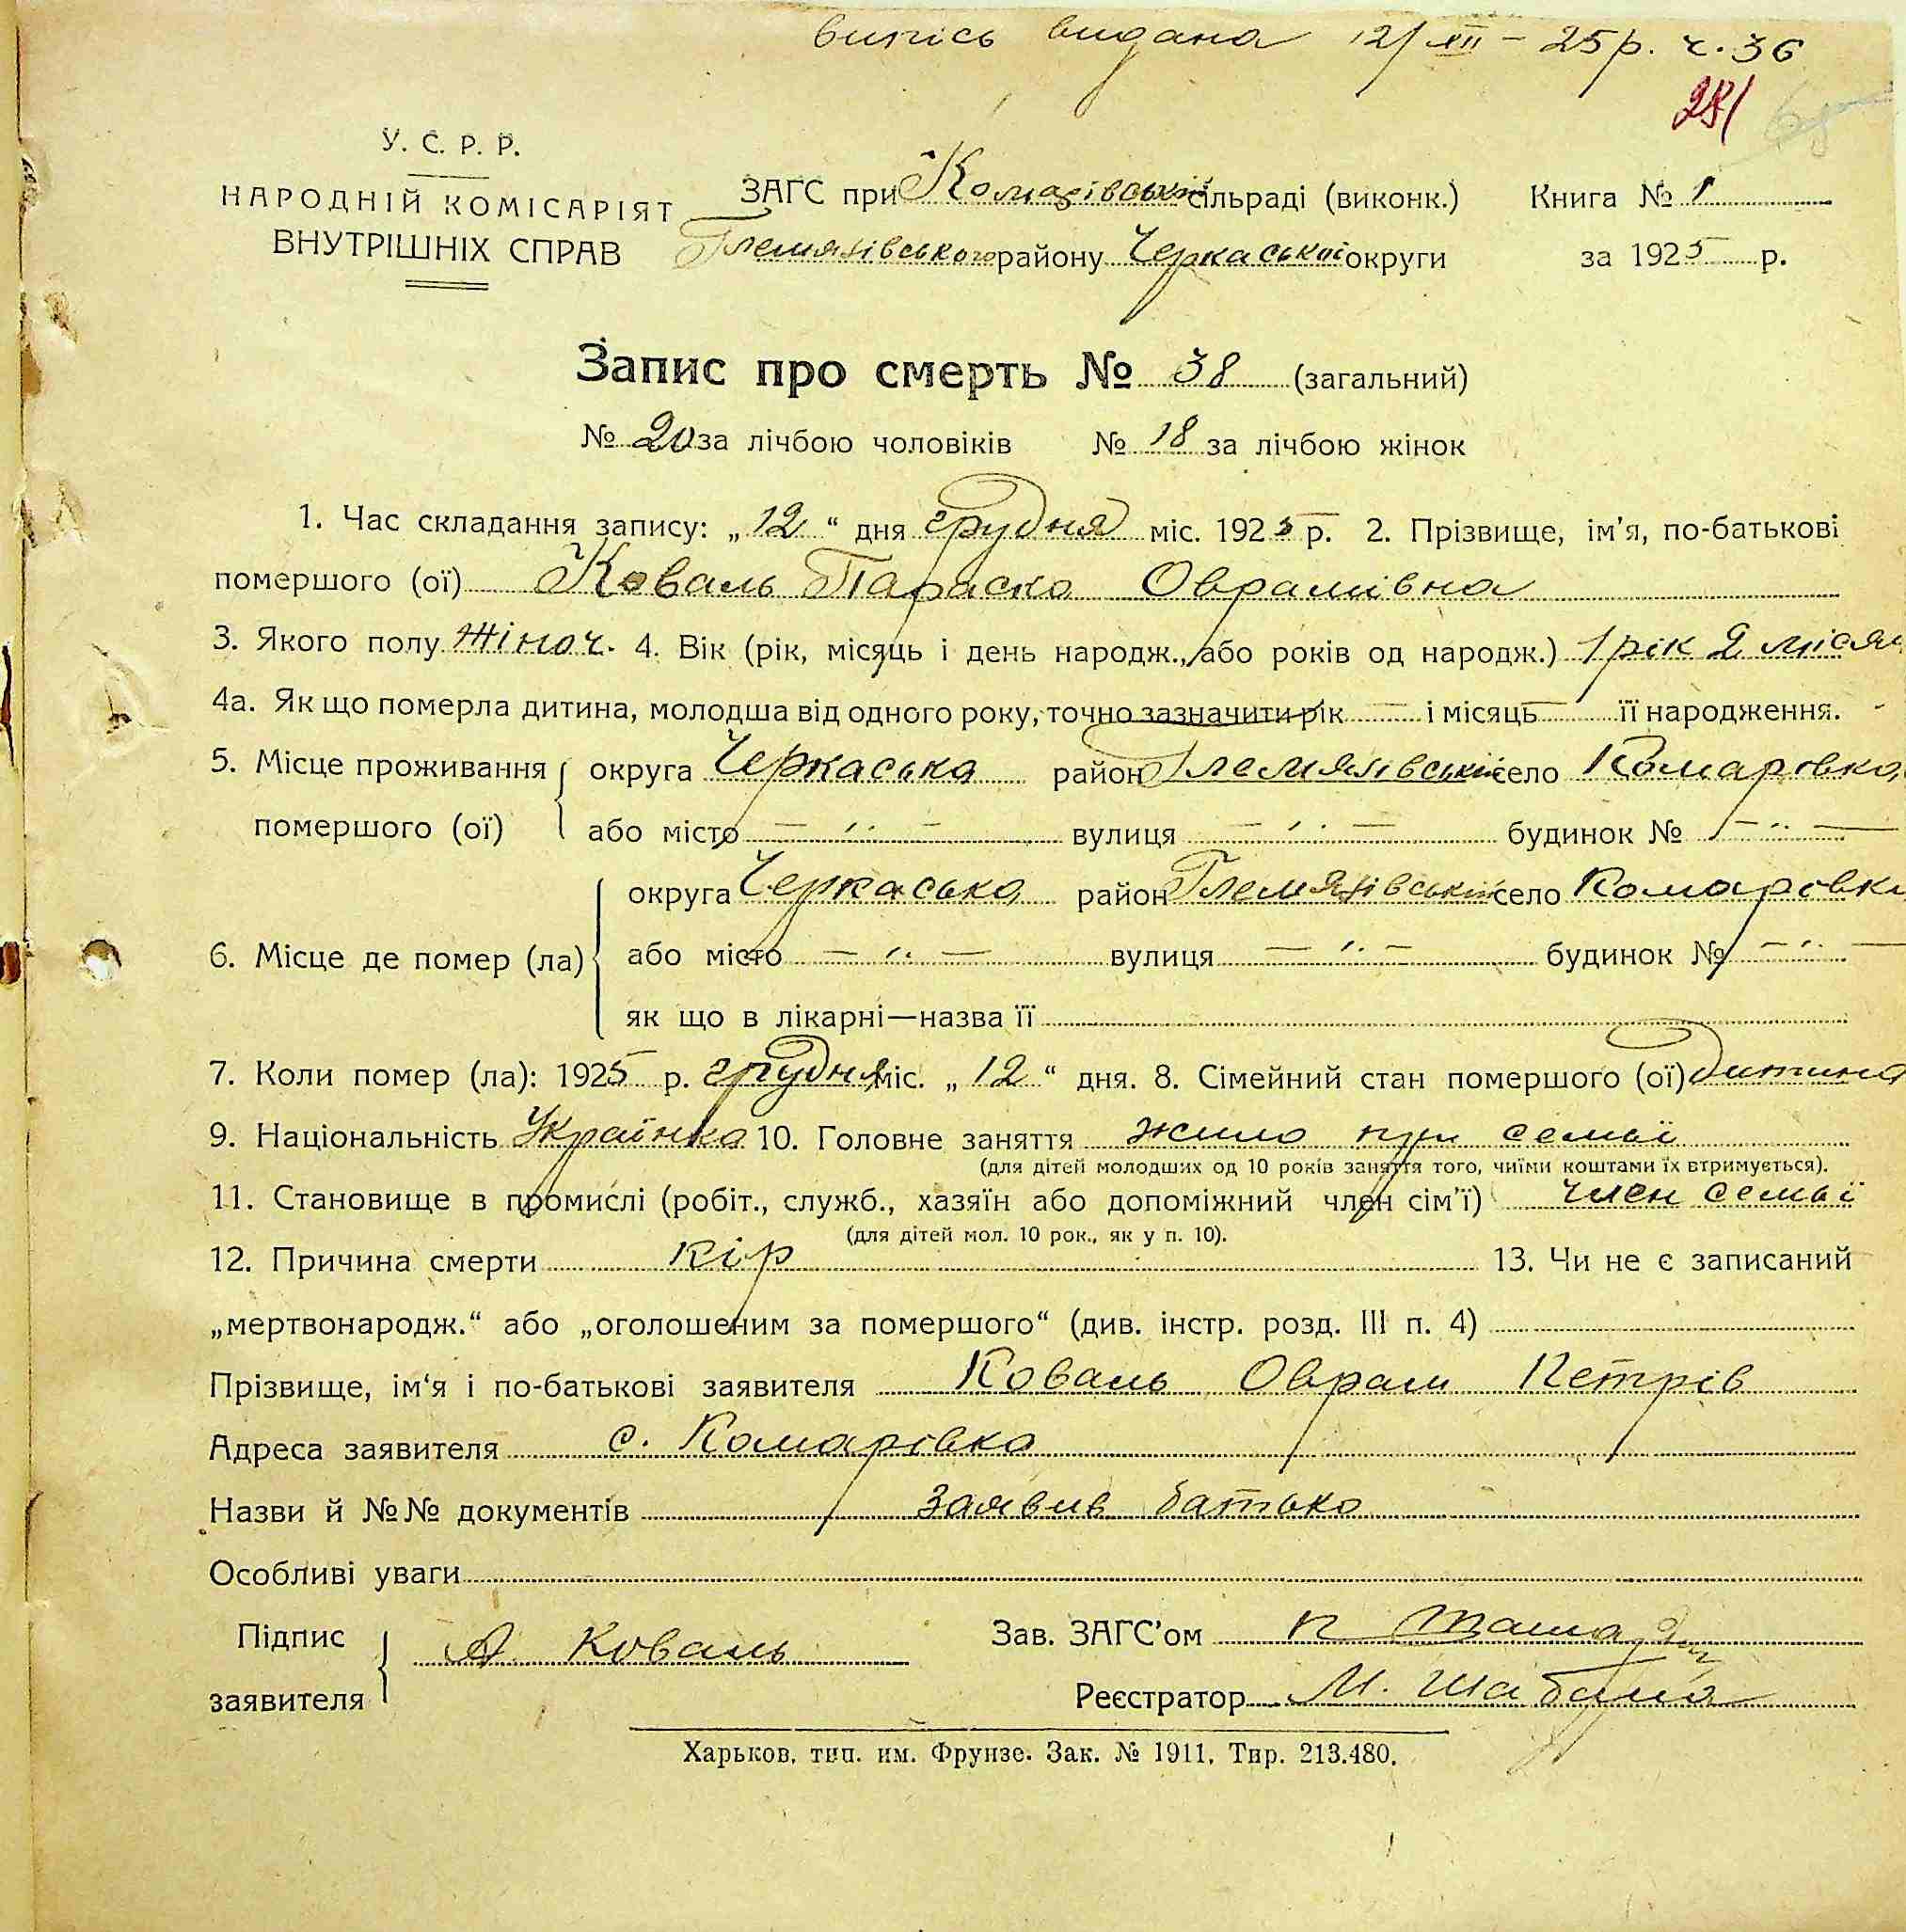 випісь видана 12/XII – 25 р. ч. 36
281
У. С. Р. Р.
НАРОДНІЙ КОМІСАРІЯТ
ВНУТРІШНІХ СПРАВ
ЗАГС при Комарівській сільраді (виконк.) Книга № 1
Глемязівського району Черкаської округи за 1925 р.
Запис про смерть № 38 (загальний)
№ 20 за лічбою чоловіків № 18 за лічбою жінок
1. Час складання запису: „12“ дня грудня міс. 1925 р. 2. Прізвище, ім'я, по-батькові
помершого (ої) Коваль Параска Оврамівна
3. Якого полу жіноч. 4. Вік (рік, місяць і день народж., або років од народж.) 1 рік 2 місяц
4а. Як що померла дитина, молодша від одного року, точно зазначити рік — і місяць — її народження.
5. Місце проживання помершого (ої) округа Черкаська район Глемязівський село Комаровка
або місто — „ — вулиця — „ — будинок № — „ —
6. Місце де помер (ла) округа Черкаська район Глемязівський село Комаровка
або місто — „ — вулиця — „ — будинок № — „ —
як що в лікарні—назва її
7. Коли помер (ла): 1925 р. грудня міс. „12“ дня. 8. Сімейний стан помершого (ої) дитина
9. Національність Українка 10. Головне заняття жило при семьї
(для дітей молодших од 10 років заняття того, чиїми коштами їх втримується).
11. Становище в промислі (робіт., служб., хазяїн або допоміжний член сім'ї) член семьї
(для дітей мол. 10 рок., як у п. 10).
12. Причина смерти кір 13. Чи не є записаний
„мертвонародж.“ або „оголошеним за помершого“ (див. інстр. розд. III п. 4)
Прізвище, ім'я і по-батькові заявителя Коваль Оврам Петрів
Адреса заявителя с. Комарівка
Назви й №№ документів заявив батько
Особливі уваги
Підпис заявителя А. Коваль Зав. ЗАГС'ом П
Реєстратор М. Шабуня
Харьков, тип. им. Фрунзе. Зак. № 1911. Тир. 213.480.